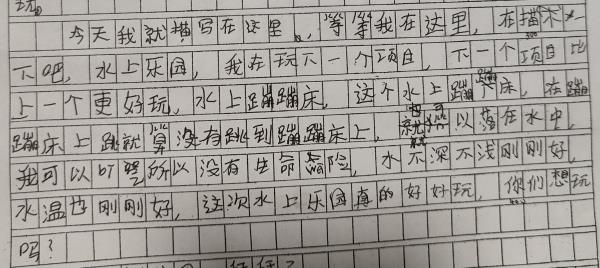 玩。
今天我就描写在这里,等等我在这里,在描不一
下吧,水上乐园,我在玩下一个项目,下一个项目比
上一个更好玩,水上蹦蹦床,这个水上蹦床,在蹦
蹦床上跳就算没有跳到蹦蹦床上,可以落在水中,
我可以所以没有生命危险,水不深不浅刚刚好,
水温也刚刚好,这次水上乐园真的好好玩,你们想玩
吗?